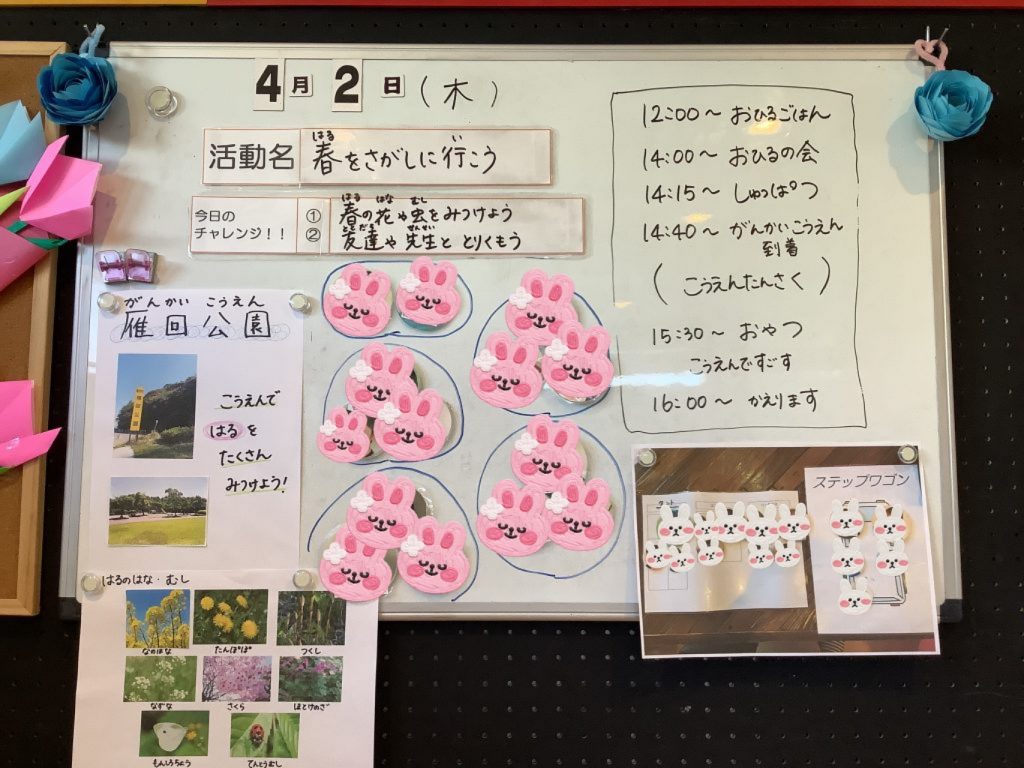 4月2日(木)
活動名 春をさがしに行こう
はる い
今日の チャレンジ！！
① 春の花や虫をみつけよう
はる はな むし
② 友達や先生ととりくもう
ともだち せんせい
12:00～ おひるごはん
14:00～ おひるの会
14:15～ しゅっぱつ
14:40～ がんかいこうえん
到着
(こうえんたんさく)
15:30～ おやつ
こうえんですごす
16:00～ かえります
がんかい こうえん
雁回公園
こうえんで
はるを
たくさん
みつけよう!
はるのはな・むし
なのはな たんぽぽ つくし
なずな さくら ほとけのざ
もんしろちょう てんとうむし
ステップワゴン